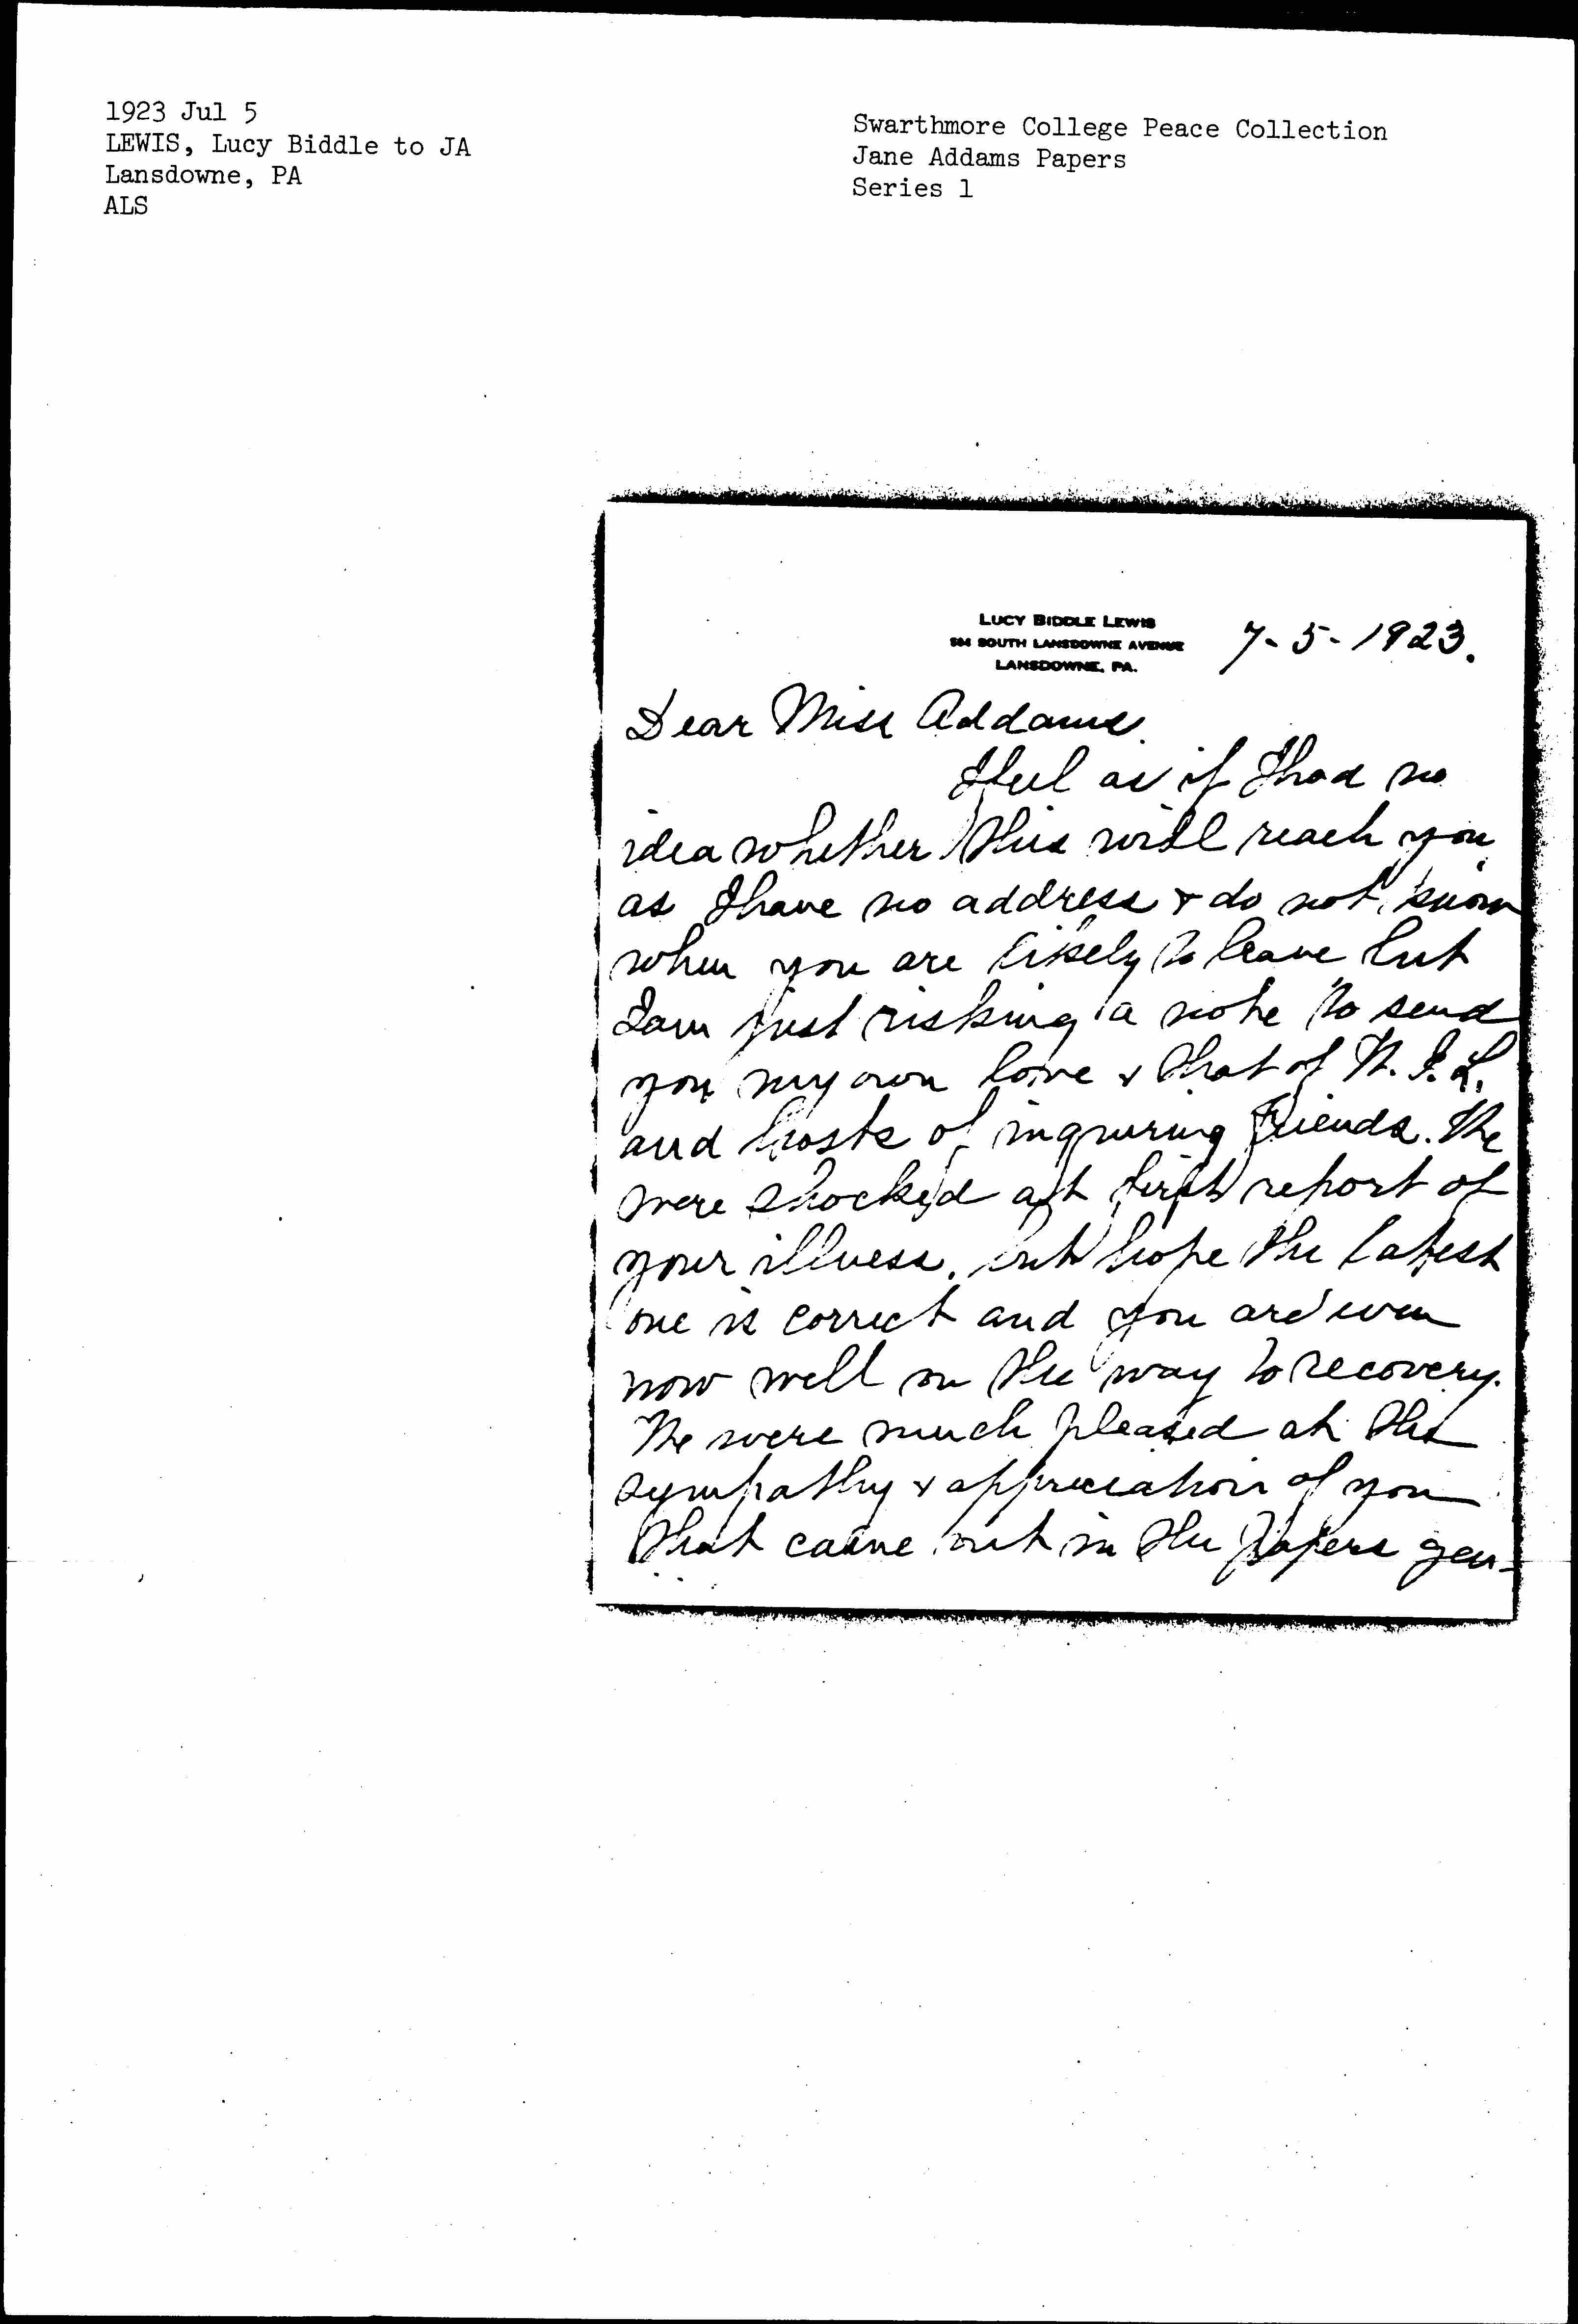 1923 Jul 5
LEWIS, Lucy Biddle to JA
Lansdowne, PA
ALS
Swarthmore College Peace Collection
Jane Addams Papers
Series 1
LUCY BIDDLE LEWIS
SOUTH LANSDOWNE AVENUE
LANSDOWNE, PA.
7-5-1923.
Dear Miss Addams.
I feel as if I had no
idea whether this will reach you
as I have no address & do not know
when you are likely to leave but
I am just risking a note to send
you my own love & that of W. I. L.
and hosts of inquiring friends. We
were shocked at first report of
your illness, but hope the latest
one is correct and you are even
now well on the way to recovery.
We were much pleased at the
sympathy & appreciation of you
that came out in the papers gen-